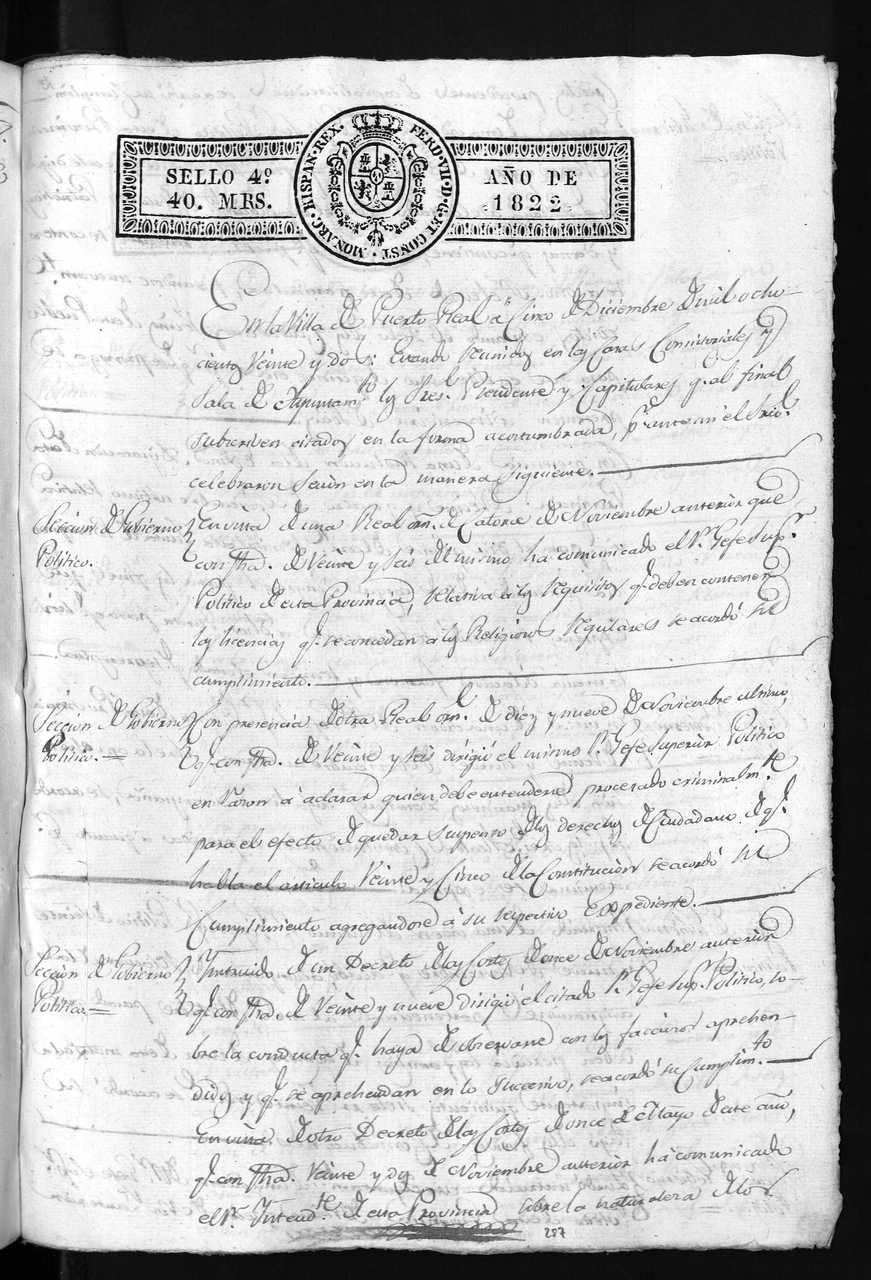 SELLO 4º
40. MRS.
MONARC. HISPAN. REX. FERD. VII. D. G. ET CONST.
AÑO DE
1822
En la Villa de Puerto Real a Cinco de Diciembre de mil ocho-
cientos Veinte y dos: Estando Reunidos en las Casas Consistoriales y
Sala de Ayuntamto los Sres. Presidente y Capitulares q. al final
subscriven citados en la forma acostumbrada, pr. ante mi el Srio.
celebraron Sesion en la manera Siguiente.
Seccion de Gobierno
Politico.
En vista de una Real orn. de Catorce de Noviembre anterior que
con fha. de Veinte y Seis del mismo ha comunicado el Sr. Gefe Supr.
Politico de esta Provincia, relativa a los requisitos q. deben contener
las licencias q. se concedan a los Religiosos Regulares se acordó su
cumplimiento.
Seccion de Gobierno
Politico.=
Con presencia de otra Real orn. de diez y nueve de Noviembre ultimo,
q. con fha. de Veinte y Seis dirigió el mismo Sr. Gefe Superior Politico
en razon á aclarar quien debe entenderse procesado criminalmte
para el efecto de quedar suspenso de los derechos de Ciudadano de q.
habla el articulo Veinte y Cinco de la Constitucion se acordó su
Cumplimiento agregandose á su respectivo Expediente.
Seccion de Gobierno
Politico=
Instruido de un Decreto de las Cortes de once de Noviembre anterior
q. con fha. de Veinte y nueve dirigió el citado Sr. Gefe Supr. Politico, so-
bre la conducta q. haya de observarse con los facciosos aprehen-
didos y q. se aprehendan en lo sucesivo, se acordó su Cumplimto.
En vista de otro Decreto de las Cortes de once de Mayo de este año,
q. con fha. Veinte y dos de Noviembre anterior ha comunicado
el Sr. Intendte de esta Provincia sobre la naturaleza de los
287